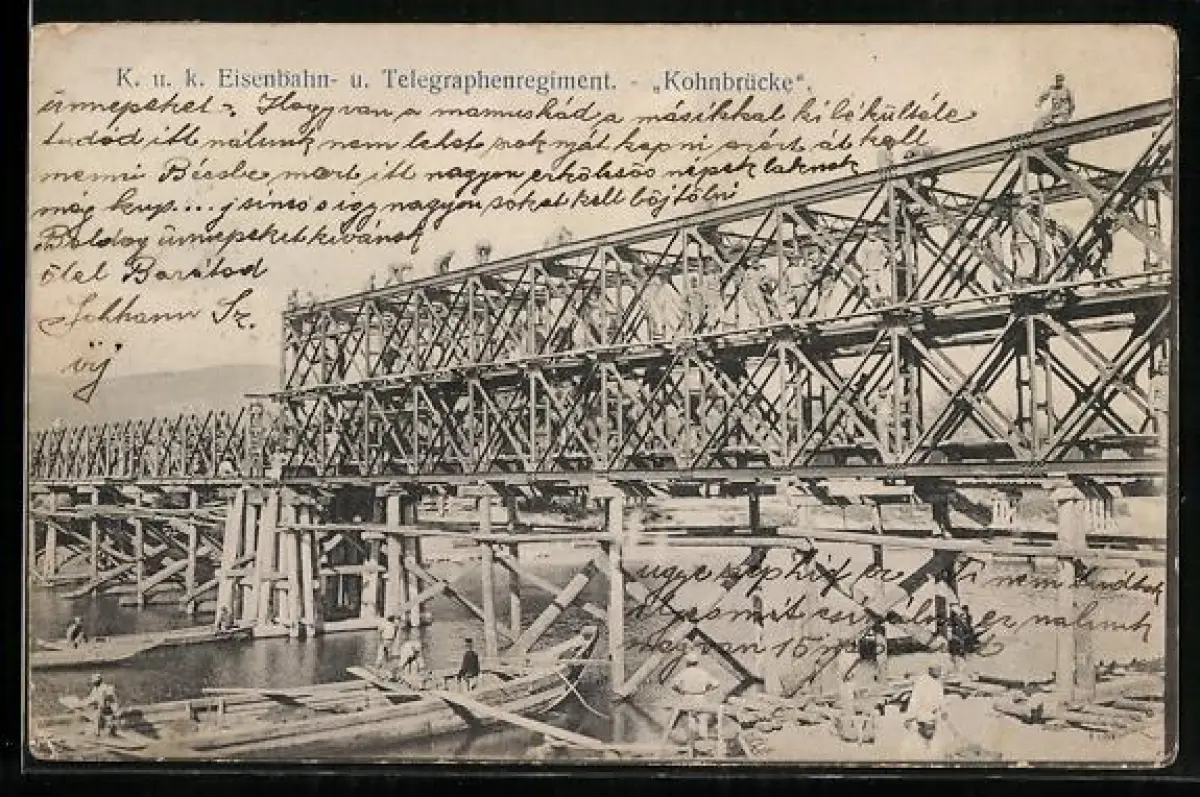 K. u. k. Eisenbahn- u. Telegraphenregiment. - „Kohnbrücke“.
ünnepeket. Hogy van a mamuskád a másikkal ki békültéle
tudod itt nálunk nem lehet kapni azért át kell
menni Bécsbe mert itt nagyon erkölcsös népek laknak
még kup.... j sincs s igy nagyon sokat kell böjtölni
Boldog ünnepeket kívánok
ölel Barátod
Johhann Sz.
ugye szép hid ez nem
ez nálunk
nagyvan 15